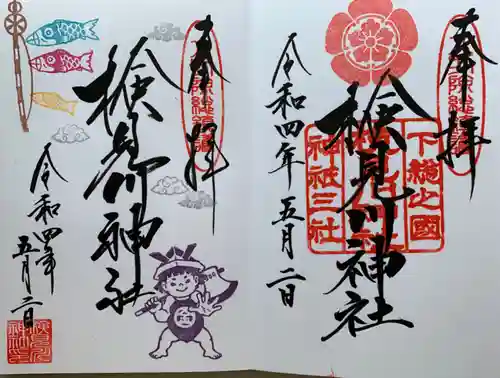 奉拝
検見川神社
令和四年
五月二日
奉拝
下総之國
神祇三社
検見川神社
令和四年五月二日